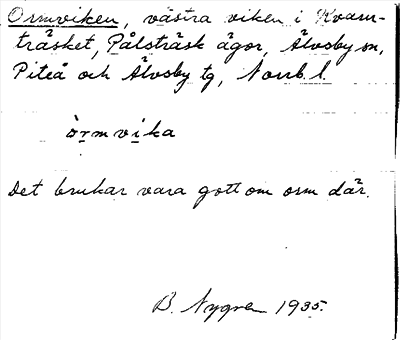 Ormviken, västra viken i Kvarn-
träsket, Pålsträsk ägor, Älvsby sn,
Piteå och Älvsby tg, Norrb. l.
òrmvika
Det brukar vara gott om orm där.
B. Nygren 1935.